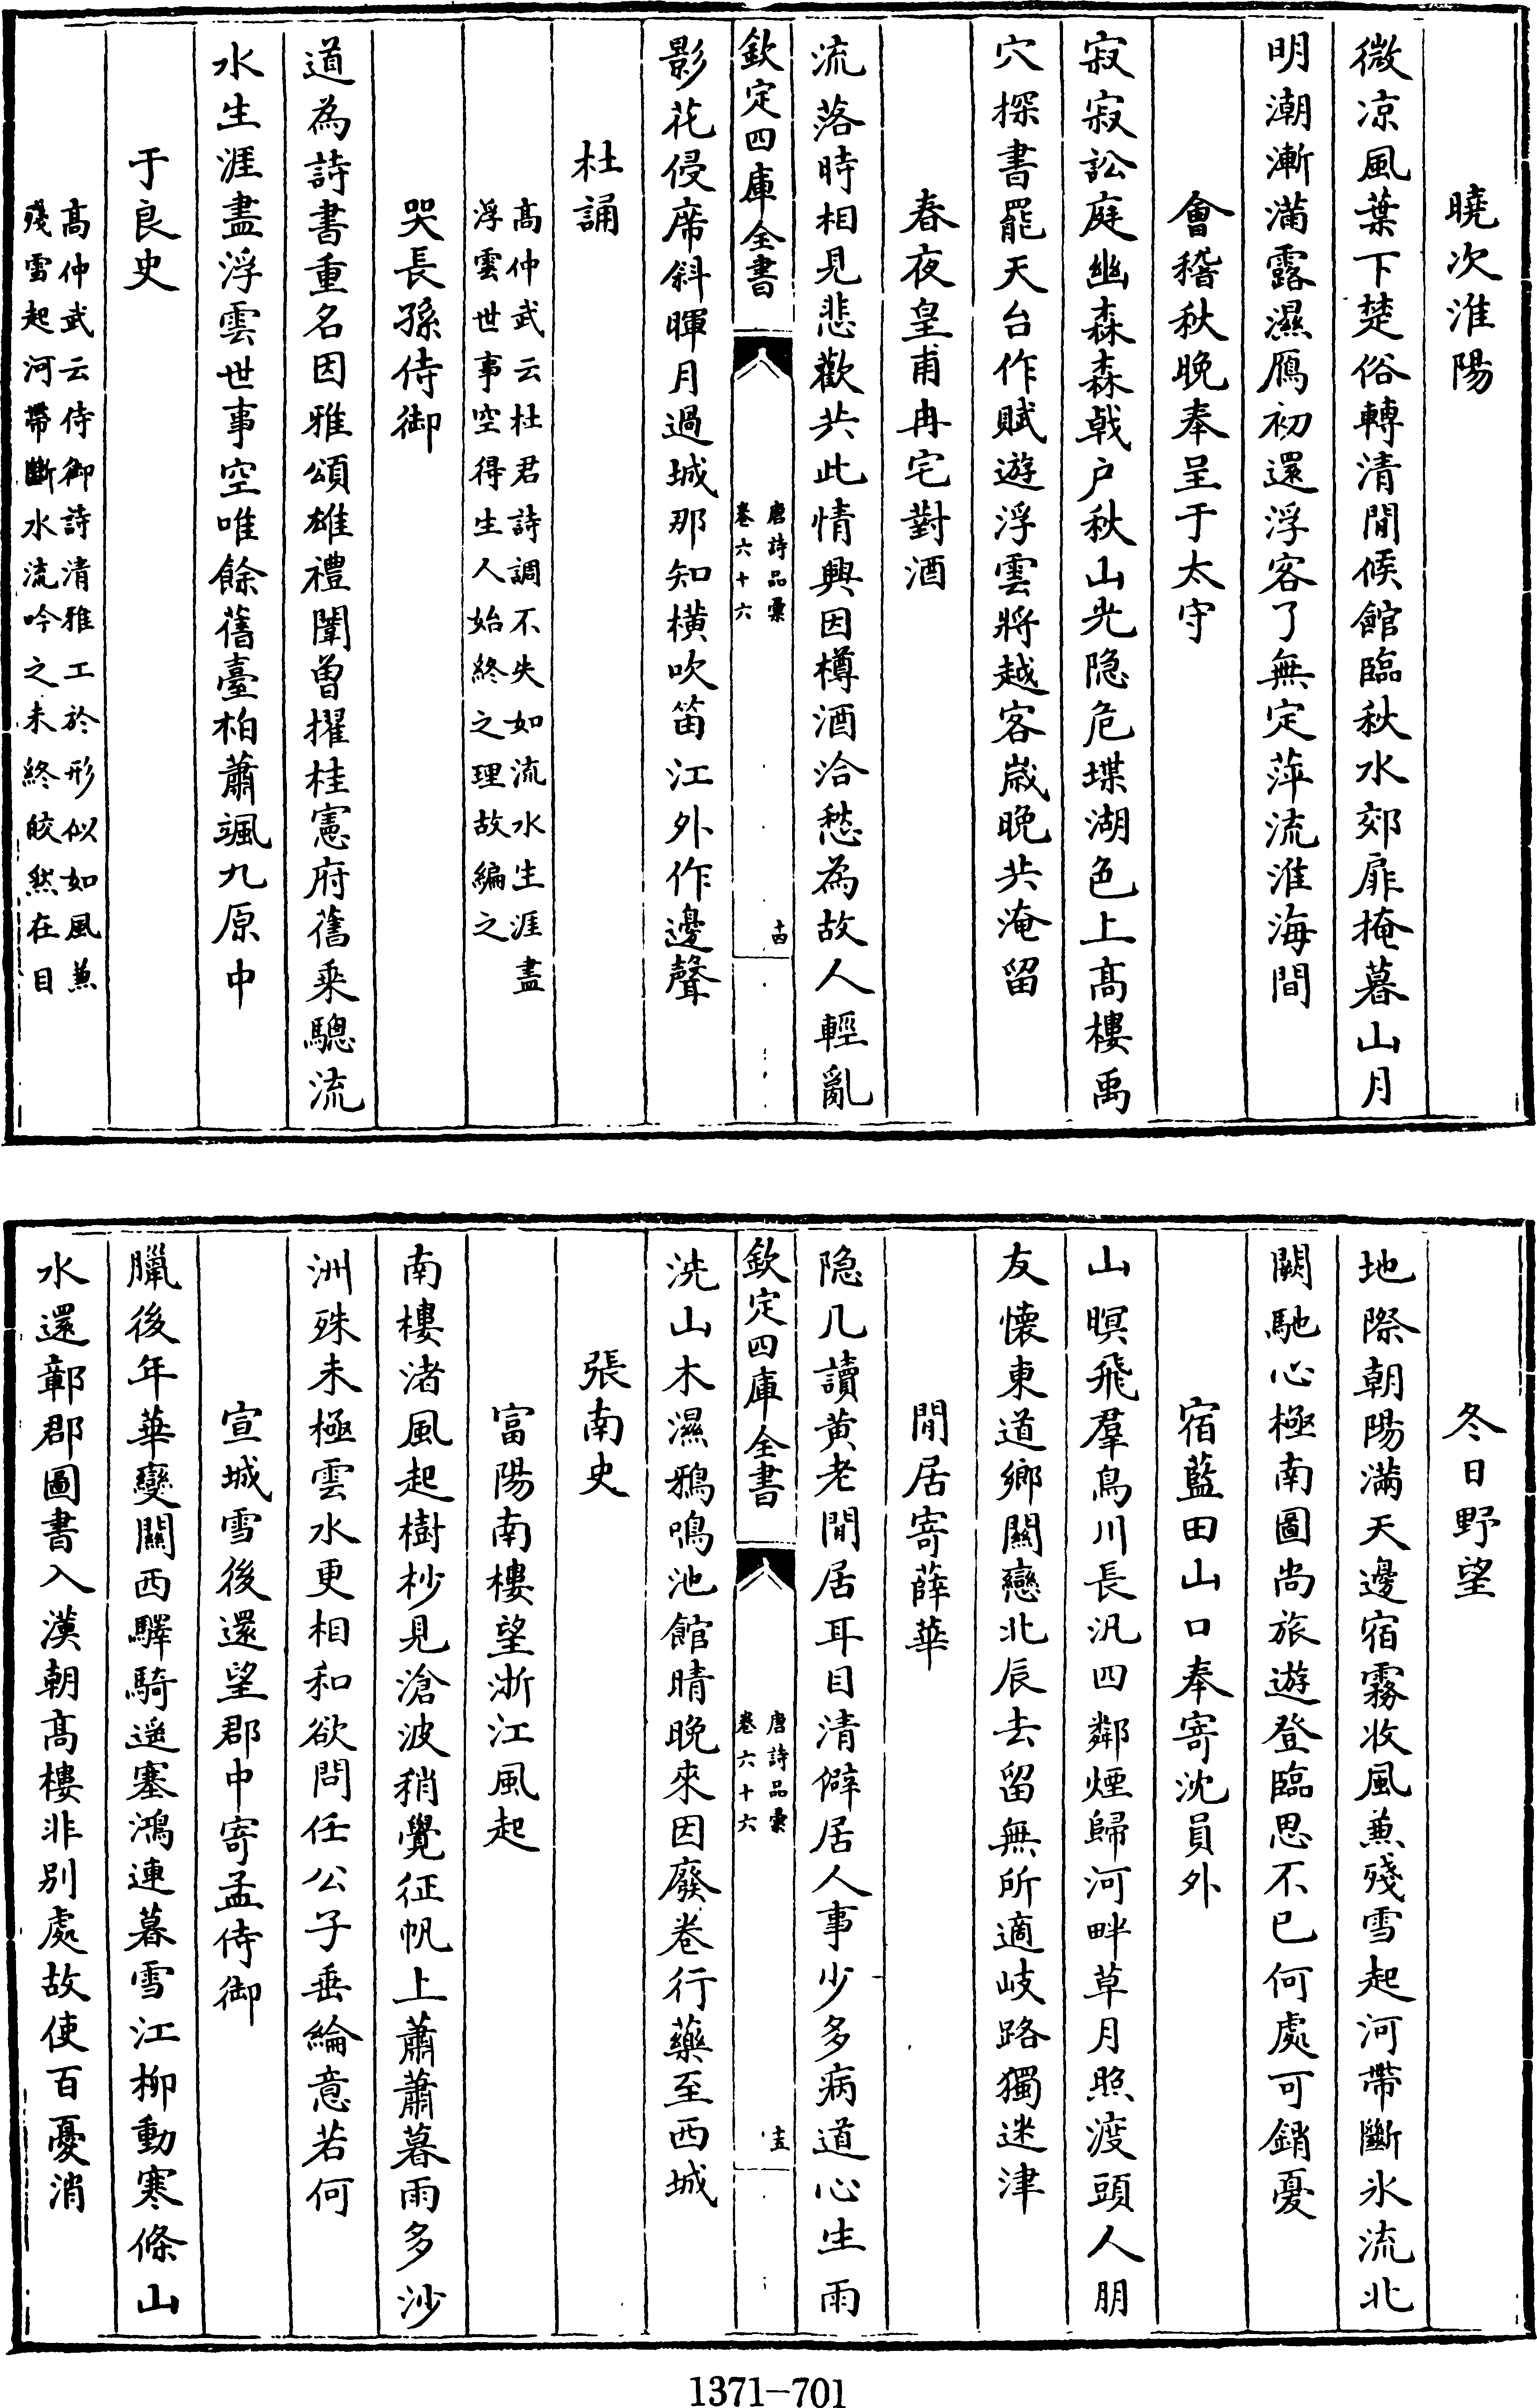 曉次淮陽
微凉風葉下楚俗轉清閒候館臨秋水郊扉掩暮山月
明潮漸滿露濕鴈初還浮客了無定萍流淮海間
會稽秋晚奉呈于太守
寂寂訟庭幽森森戟户秋山光隐危堞湖色上髙樓禹
穴探書罷天台作賦遊浮雲將越客嵗晚共淹留
春夜皇甫冉宅對酒
流落時相見悲歡共此情興因樽酒洽愁為故人輕亂
欽定四庫全書
唐詩品彙
卷六十六
十四
影花侵席斜暉月過城那知横吹笛江外作邊聲
杜誦
髙仲武云杜君詩調不失如流水生涯盡
浮雲世事空得生人始終之理故編之
哭長孫侍御
道為詩書重名因雅頌雄禮闈曽擢桂憲府舊乘驄流
水生涯盡浮雲世事空唯餘舊臺柏蕭颯九原中
于良史
髙仲武云侍御詩清雅工於形似如風兼
殘雪起河帶斷水流吟之未終皎然在目
冬日野望
地際朝陽满天邊宿霧收風兼殘雪起河帶斷氷流北
闕馳心極南圖尚旅遊登臨思不已何處可銷憂
宿藍田山口奉寄沈員外
山暝飛羣鳥川長汎四鄰煙歸河畔草月照渡頭人朋
友懷東道鄉關戀北辰去留無所適岐路獨迷津
閒居寄薛華
隐几讀黄老閒居耳目清僻居人事少多病道心生雨
欽定四庫全書
唐詩品彙
卷六十六
十五
洗山木濕鴉鳴池館晴晚來因廢卷行藥至西城
張南史
富陽南樓望浙江風起
南樓渚風起樹杪見滄波稍覺征帆上蕭蕭暮雨多沙
洲殊未極雲水更相和欲問任公子垂綸意若何
宣城雪後還望郡中寄孟侍御
臘後年華變關西驛騎遥塞鴻連暮雪江柳動寒條山
水還鄣郡圖書入漢朝髙樓非别處故使百憂消
1371-701